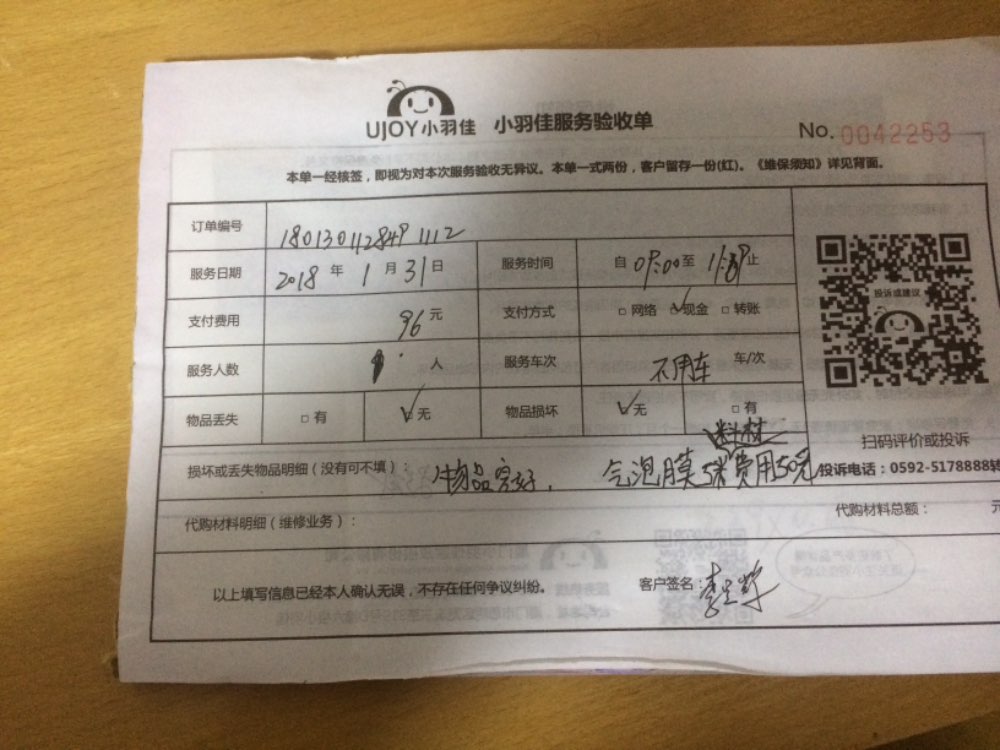 UJOY小羽佳 小羽佳服务验收单
No. 0042253
本单一经核签，即视为对本次服务验收无异议。本单一式两份，客户留存一份(红)。《维保须知》详见背面。
订单编号 180130112849 1112
服务日期 2018 年 1 月 31 日 服务时间 自 09:00 至 止
支付费用 96 元 支付方式 □ 网络 ☑ 现金 □ 转账
服务人数 1 人 服务车次 不用车 车/次
物品丢失 □ 有 ☑ 无 物品损坏 ☑ 无 □ 有
投诉或建议
扫码评价或投诉
投诉电话：0592-5178888转
损坏或丢失物品明细（没有可不填）： 物品完好. 气泡膜5米费用50元
材料
代购材料明细（维修业务）： 代购材料总额： 元
以上填写信息已经本人确认无误，不存在任何争议纠纷。 客户签名：